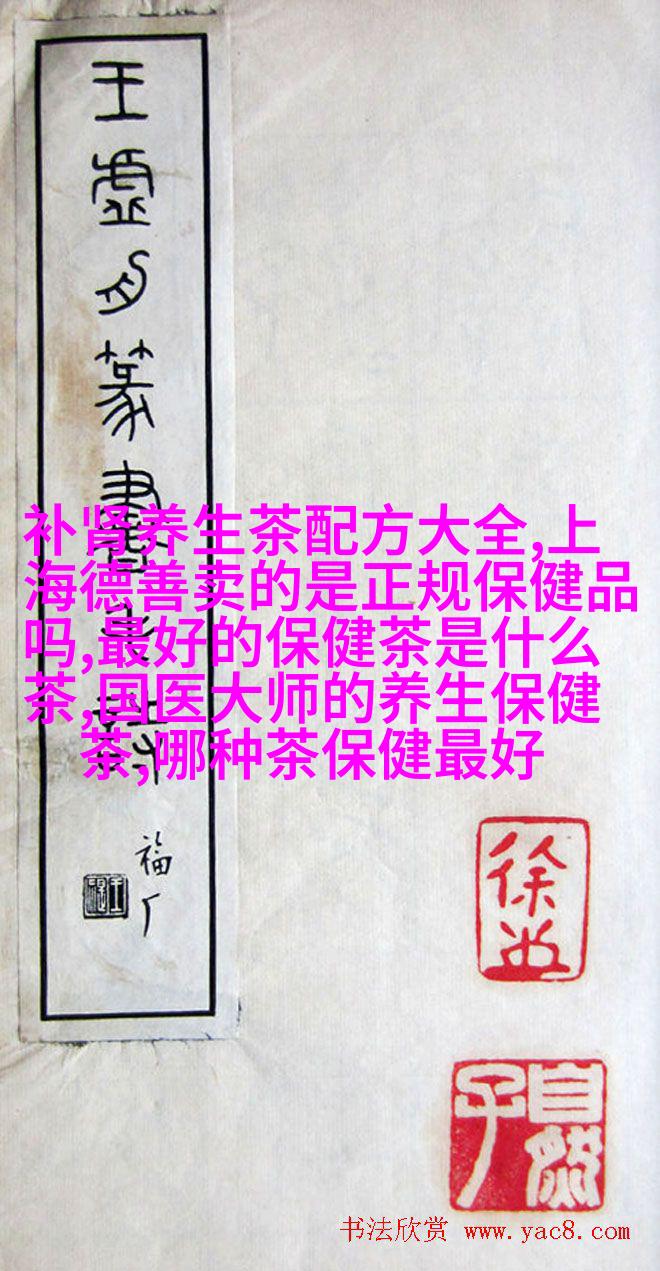 王虚舟篆書千文
福厂
补肾养生茶配方大全,上
海德善卖的是正规保健品
吗,最好的保健茶是什么
茶,国医大师的养生保健
茶,哪种茶保健最好
自然
子
书法欣赏 www.yac8.com